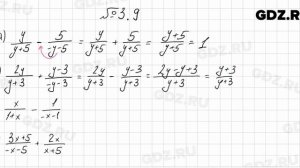 GDZ.RU
№3.9
а) y/(y+5) - 5/(-y-5) = y/(y+5) + 5/(y+5) = (y+5)/(y+5) = 1
) 2y/(y+3) + (y-3)/(-y-3) = 2y/(y+3) - (y-3)/(y+3) = (2y-y+3)/(y+3) = (y+3)/(y+3)
x/(1+x) - 1/(-x-1)
(3x+5)/(-x-5) + 2x/(x+5)
GDZ.R